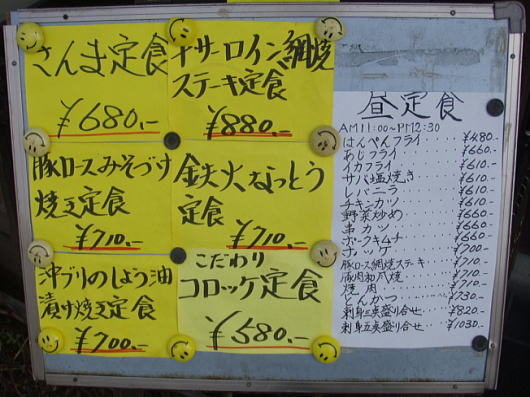 さんま定食
¥680.-
サーロイン網焼
ステーキ定食
¥880.-
豚ロースみそづけ
焼き定食
¥710.-
鉄火なっとう
定食
¥710.-
沖ブリのしょう油
漬け焼き定食
¥700.-
こだわり
コロッケ定食
¥580.-
昼定食
AM11:00~PM2:30
はんぺんフライ ¥480.-
あじフライ ¥660.-
イカフライ ¥610.-
サバ塩焼き ¥610.-
レバニラ ¥610.-
チキンカツ ¥610.-
野菜炒め ¥660.-
串カツ ¥660.-
ポークキムチ ¥660.-
ホッケ ¥700.-
豚ロース網焼ステーキ ¥710.-
焼肉 ¥710.-
とんかつ ¥730.-
刺身三矣盛り合せ ¥820.-
刺身五矣盛り合せ ¥1030.-